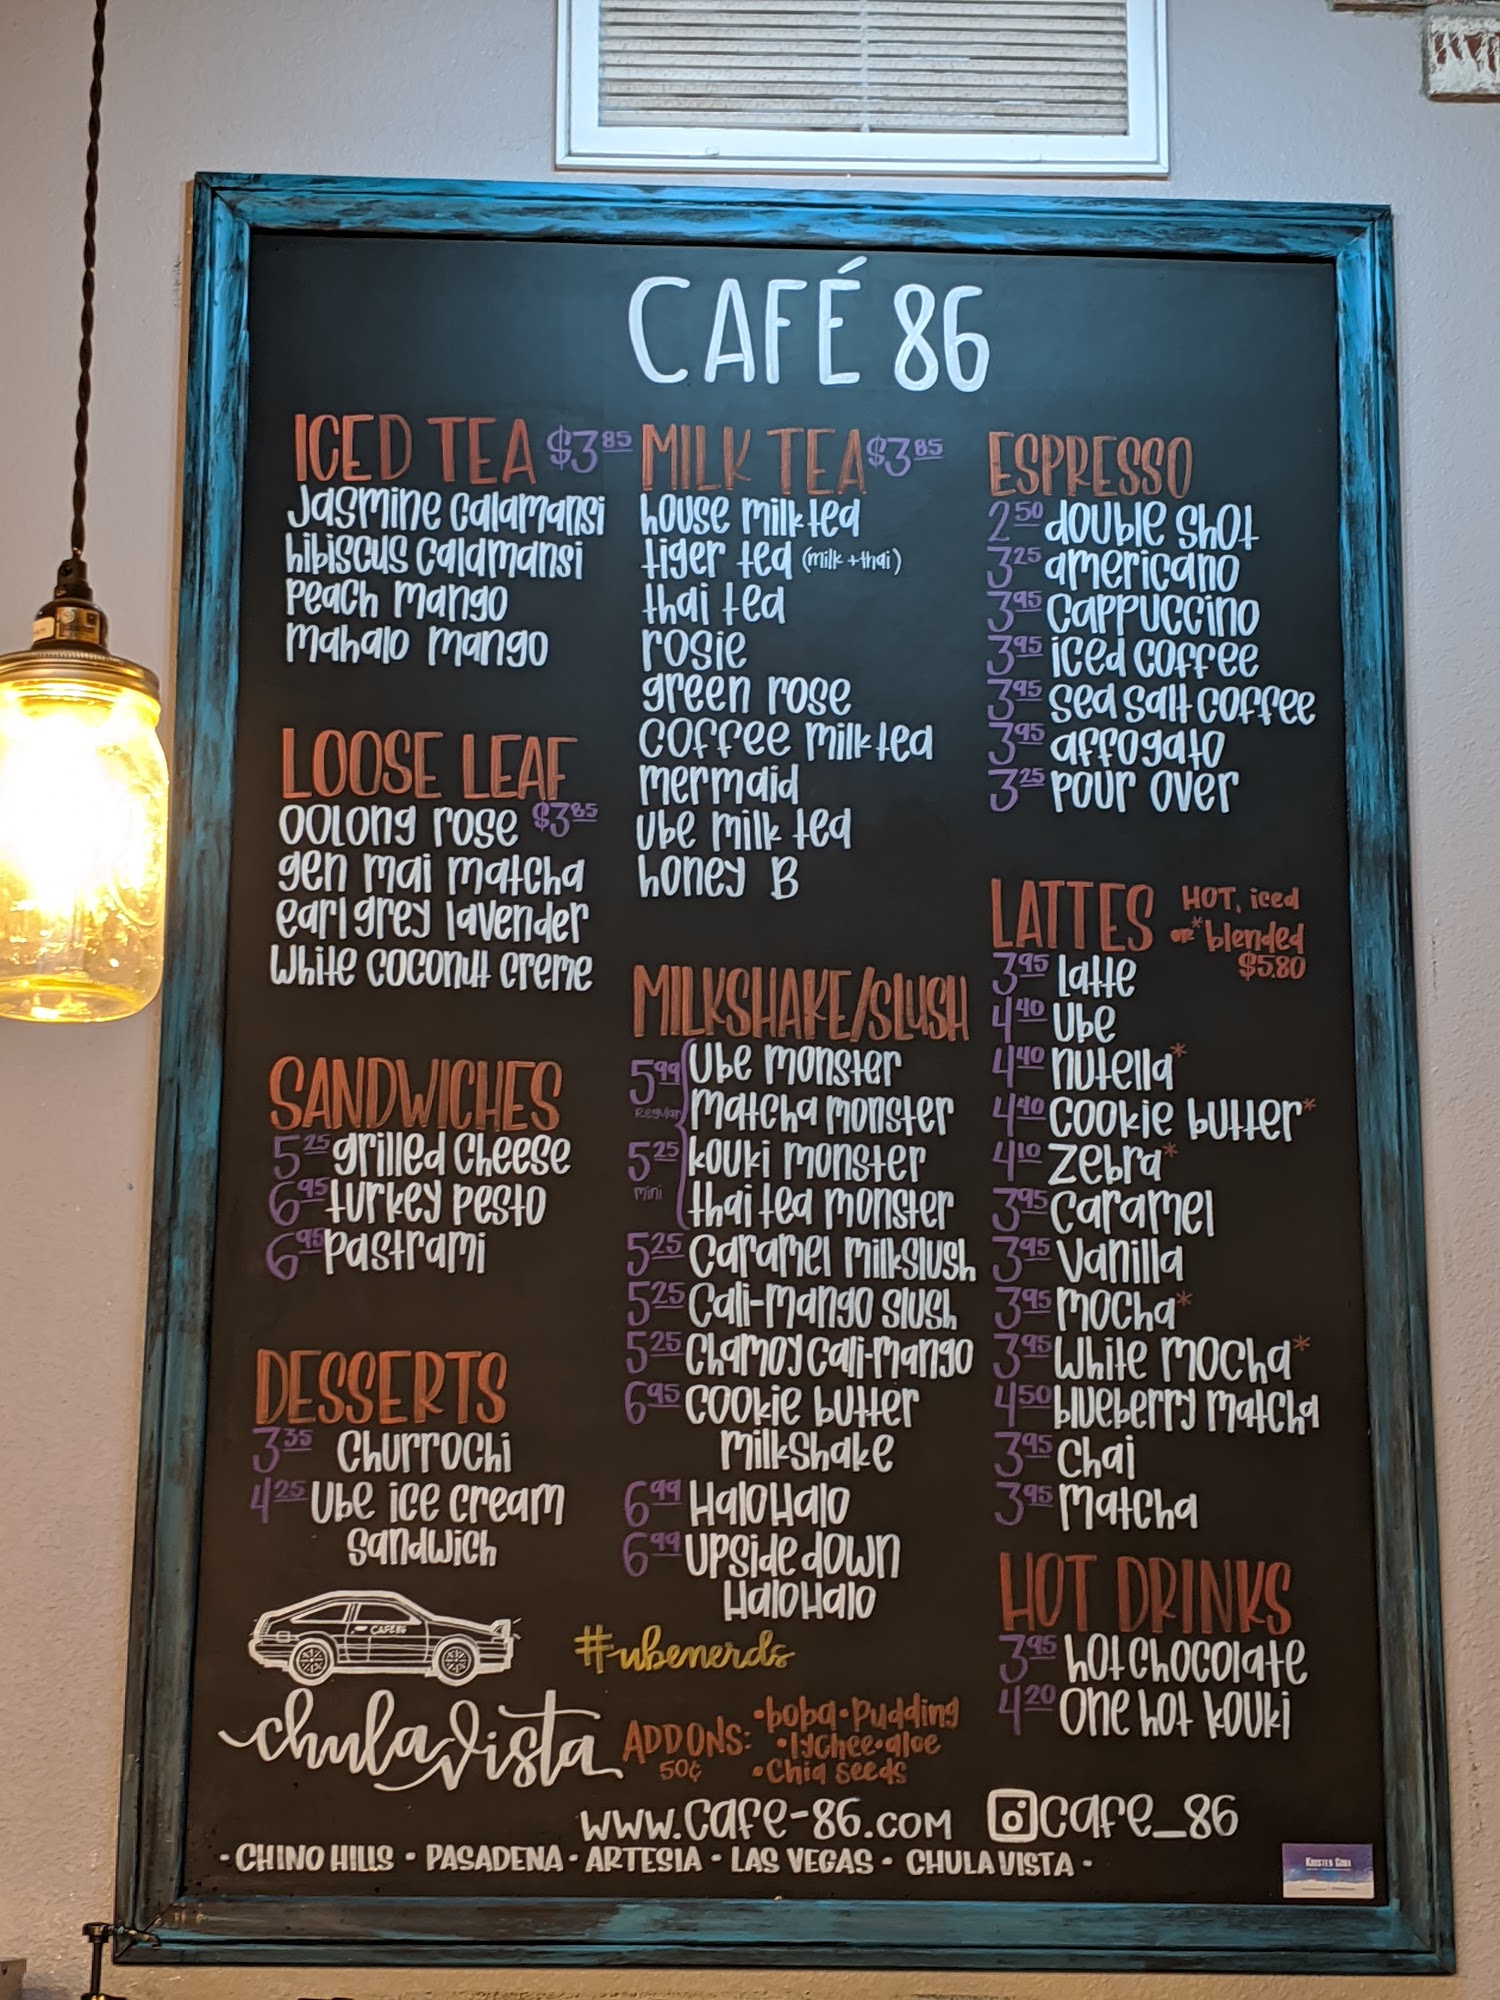 CAFÉ 86
ICED TEA $3.85
Jasmine calamansi
hibiscus calamansi
peach mango
mahalo mango
LOOSE LEAF
oolong rose $3.85
gen mai matcha
earl grey lavender
white coconut creme
SANDWICHES
5.25 grilled cheese
6.95 turkey pesto
6.95 pastrami
DESSERTS
3.35 churrochi
4.25 ube ice cream
sandwich
CAFE 86
chula vista
MILK TEA $3.85
house milk tea
tiger tea (milk + thai)
thai tea
rosie
green rose
coffee milk tea
mermaid
ube milk tea
honey B
MILKSHAKE/SLUSH
5.99 Regular
5.25 mini
ube monster
matcha monster
kouki monster
thai tea monster
5.25 caramel milkslush
5.25 cali-mango slush
5.25 chamoy cali-mango
6.95 cookie butter
milkshake
6.99 HaloHalo
6.99 upside down
HaloHalo
#ubenerds
ADDONS: 50¢
•boba •pudding
•lychee •aloe
•chia seeds
ESPRESSO
2.50 double shot
3.25 americano
3.95 cappuccino
3.95 iced coffee
3.95 sea salt coffee
3.95 affogato
3.25 pour over
LATTES HOT, iced
or *blended
$5.80
3.95 latte
4.40 ube
4.40 nutella*
4.40 cookie butter*
4.10 zebra*
3.95 caramel
3.95 vanilla
3.95 mocha*
3.95 white mocha*
4.50 blueberry matcha
3.95 chai
3.95 matcha
HOT DRINKS
3.95 hot chocolate
4.20 one hot kouki
www.cafe-86.com cafe_86
• CHINO HILLS • PASADENA • ARTESIA • LAS VEGAS • CHULA VISTA •